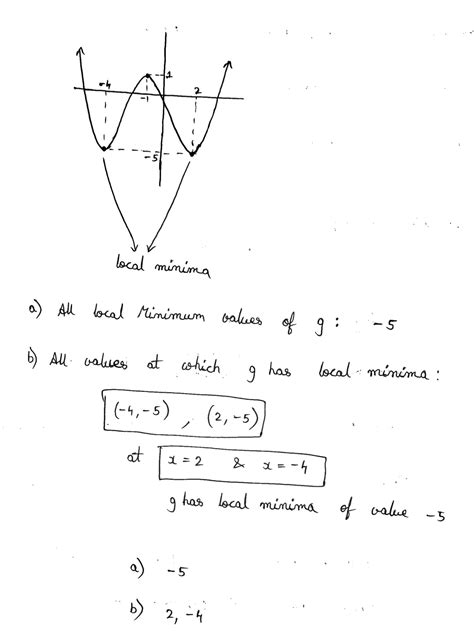 1
-4
2
-1
-5
local minima
a) All local Minimum values of g : -5
b) All values at which g has local minima :
(-4, -5) , (2, -5)
at x = 2 & x = -4
g has local minima of value -5
a) -5
b) 2, -4